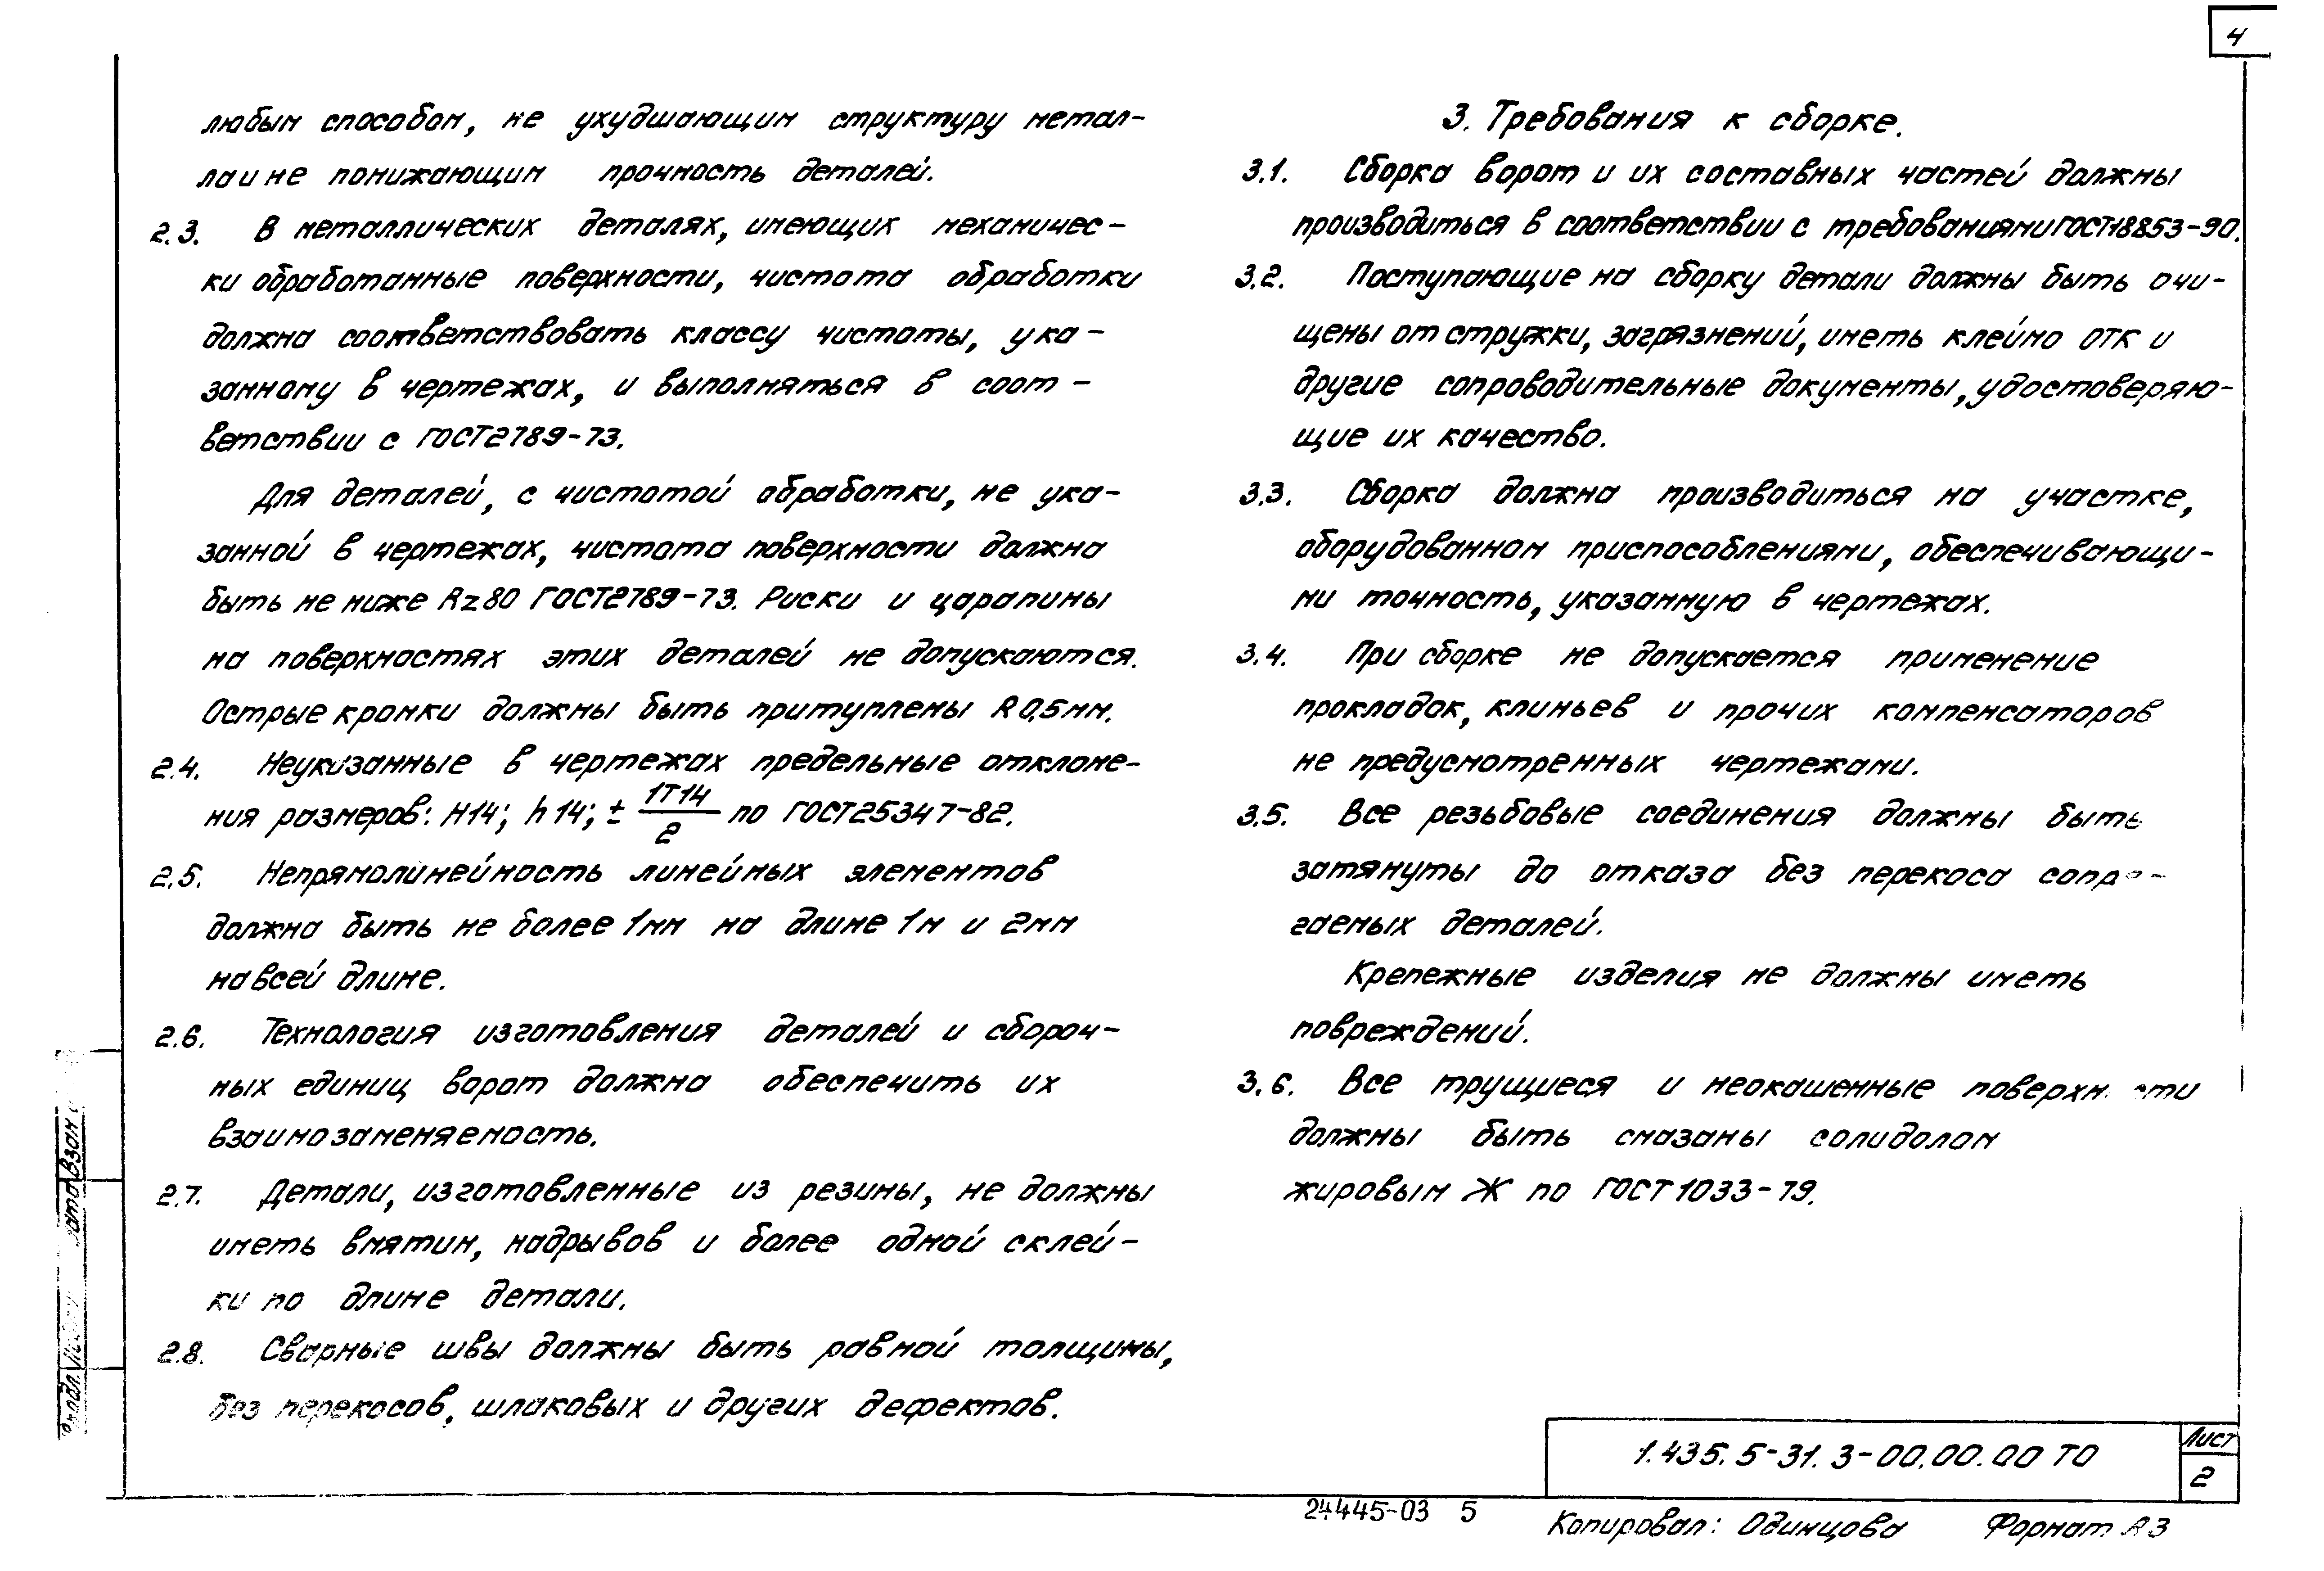 4
любым способом, не ухудшающим структуру метал-
ла и не понижающим прочность деталей.
2.3. В металлических деталях, имеющих механичес-
ки обработанные поверхности, чистота обработки
должна соответствовать классу чистоты, ука-
занному в чертежах, и выполняться в соот-
ветствии с ГОСТ 2789-73.
Для деталей, с чистотой обработки, не ука-
занной в чертежах, чистота поверхности должна
быть не ниже Rz80 ГОСТ2789-73. Риски и царапины
на поверхностях этих деталей не допускаются.
Острые кромки должны быть притуплены R 0,5мм.
2.4. Неуказанные в чертежах предельные отклоне-
ния размеров: H14; h14; ± IT14/2 по ГОСТ25347-82.
2.5. Непрямолинейность линейных элементов
должна быть не более 1мм на длине 1м и 2мм
на всей длине.
2.6. Технология изготовления деталей и сбороч-
ных единиц ворот должна обеспечить их
взаимозаменяемость.
2.7. Детали, изготовленные из резины, не должны
иметь вмятин, надрывов и более одной склей-
ки по длине детали.
2.8. Сварные швы должны быть равной толщины,
без перекосов, шлаковых и других дефектов.
3. Требования к сборке.
3.1. Сборка ворот и их составных частей должны
производиться в соответствии с требованиями ГОСТ18853-90.
3.2. Поступающие на сборку детали должны быть очи-
щены от стружки, загрязнений, иметь клеймо ОТК и
другие сопроводительные документы, удостоверяю-
щие их качество.
3.3. Сборка должна производиться на участке,
оборудованном приспособлениями, обеспечивающи-
ми точность, указанную в чертежах.
3.4. При сборке не допускается применение
прокладок, клиньев и прочих компенсаторов
не предусмотренных чертежами.
3.5. Все резьбовые соединения должны быть
затянуты до отказа без перекоса сопря-
гаемых деталей.
Крепежные изделия не должны иметь
повреждений.
3.6. Все трущиеся и неокашенные поверхности
должны быть смазаны солидолом
жировым Ж по ГОСТ 1033-79.
1.435.5-31.3-00.00.00 ТО
Лист
2
24445-03 5
Копировал: Одинцова Формат А3